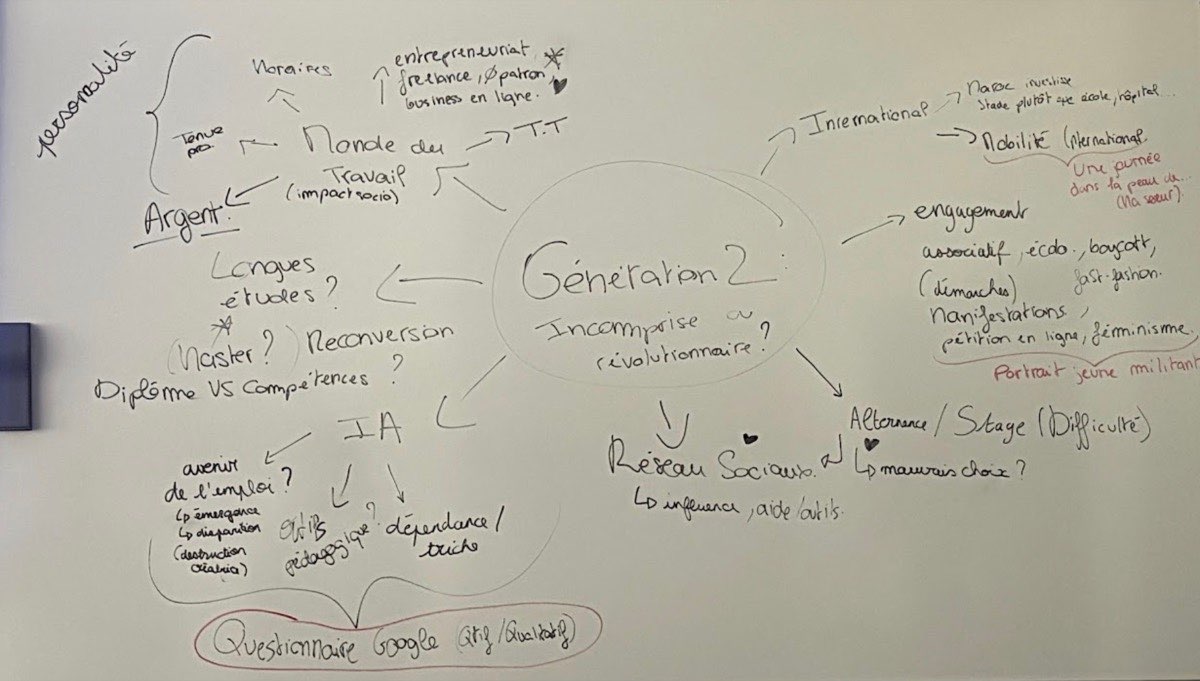 personnalité
Horaires
entrepreneuriat,
freelance, Ø patron,
business en ligne.
Tenue
pro
Monde du
Travail
(impact socio)
T.T
Argent.
International
Maroc investisse
stade plutôt que école, hôpital...
Mobilité International.
Une journée
dans la peau de...
(Ma soeur).
engagement
associatif, écolo., boycott,
fast-fashion.
(démarches)
Manifestations,
pétition en ligne, féminisme.
Portrait jeune militant
Génération Z :
Incomprise ou
révolutionnaire ?
Longues
études ?
(Master ?)
Reconversion
Diplôme VS Compétences ?
IA
avenir
de l'emploi ?
↳ émergence
↳ disparition
(destruction
créatrice)
outils
pédagogique ?
dépendance /
triche
Questionnaire Google (Qtif / Qualitatif)
Réseau Sociaux.
↳ influence, aide / outils.
Alternance / Stage (Difficulté)
↳ mauvais choix ?